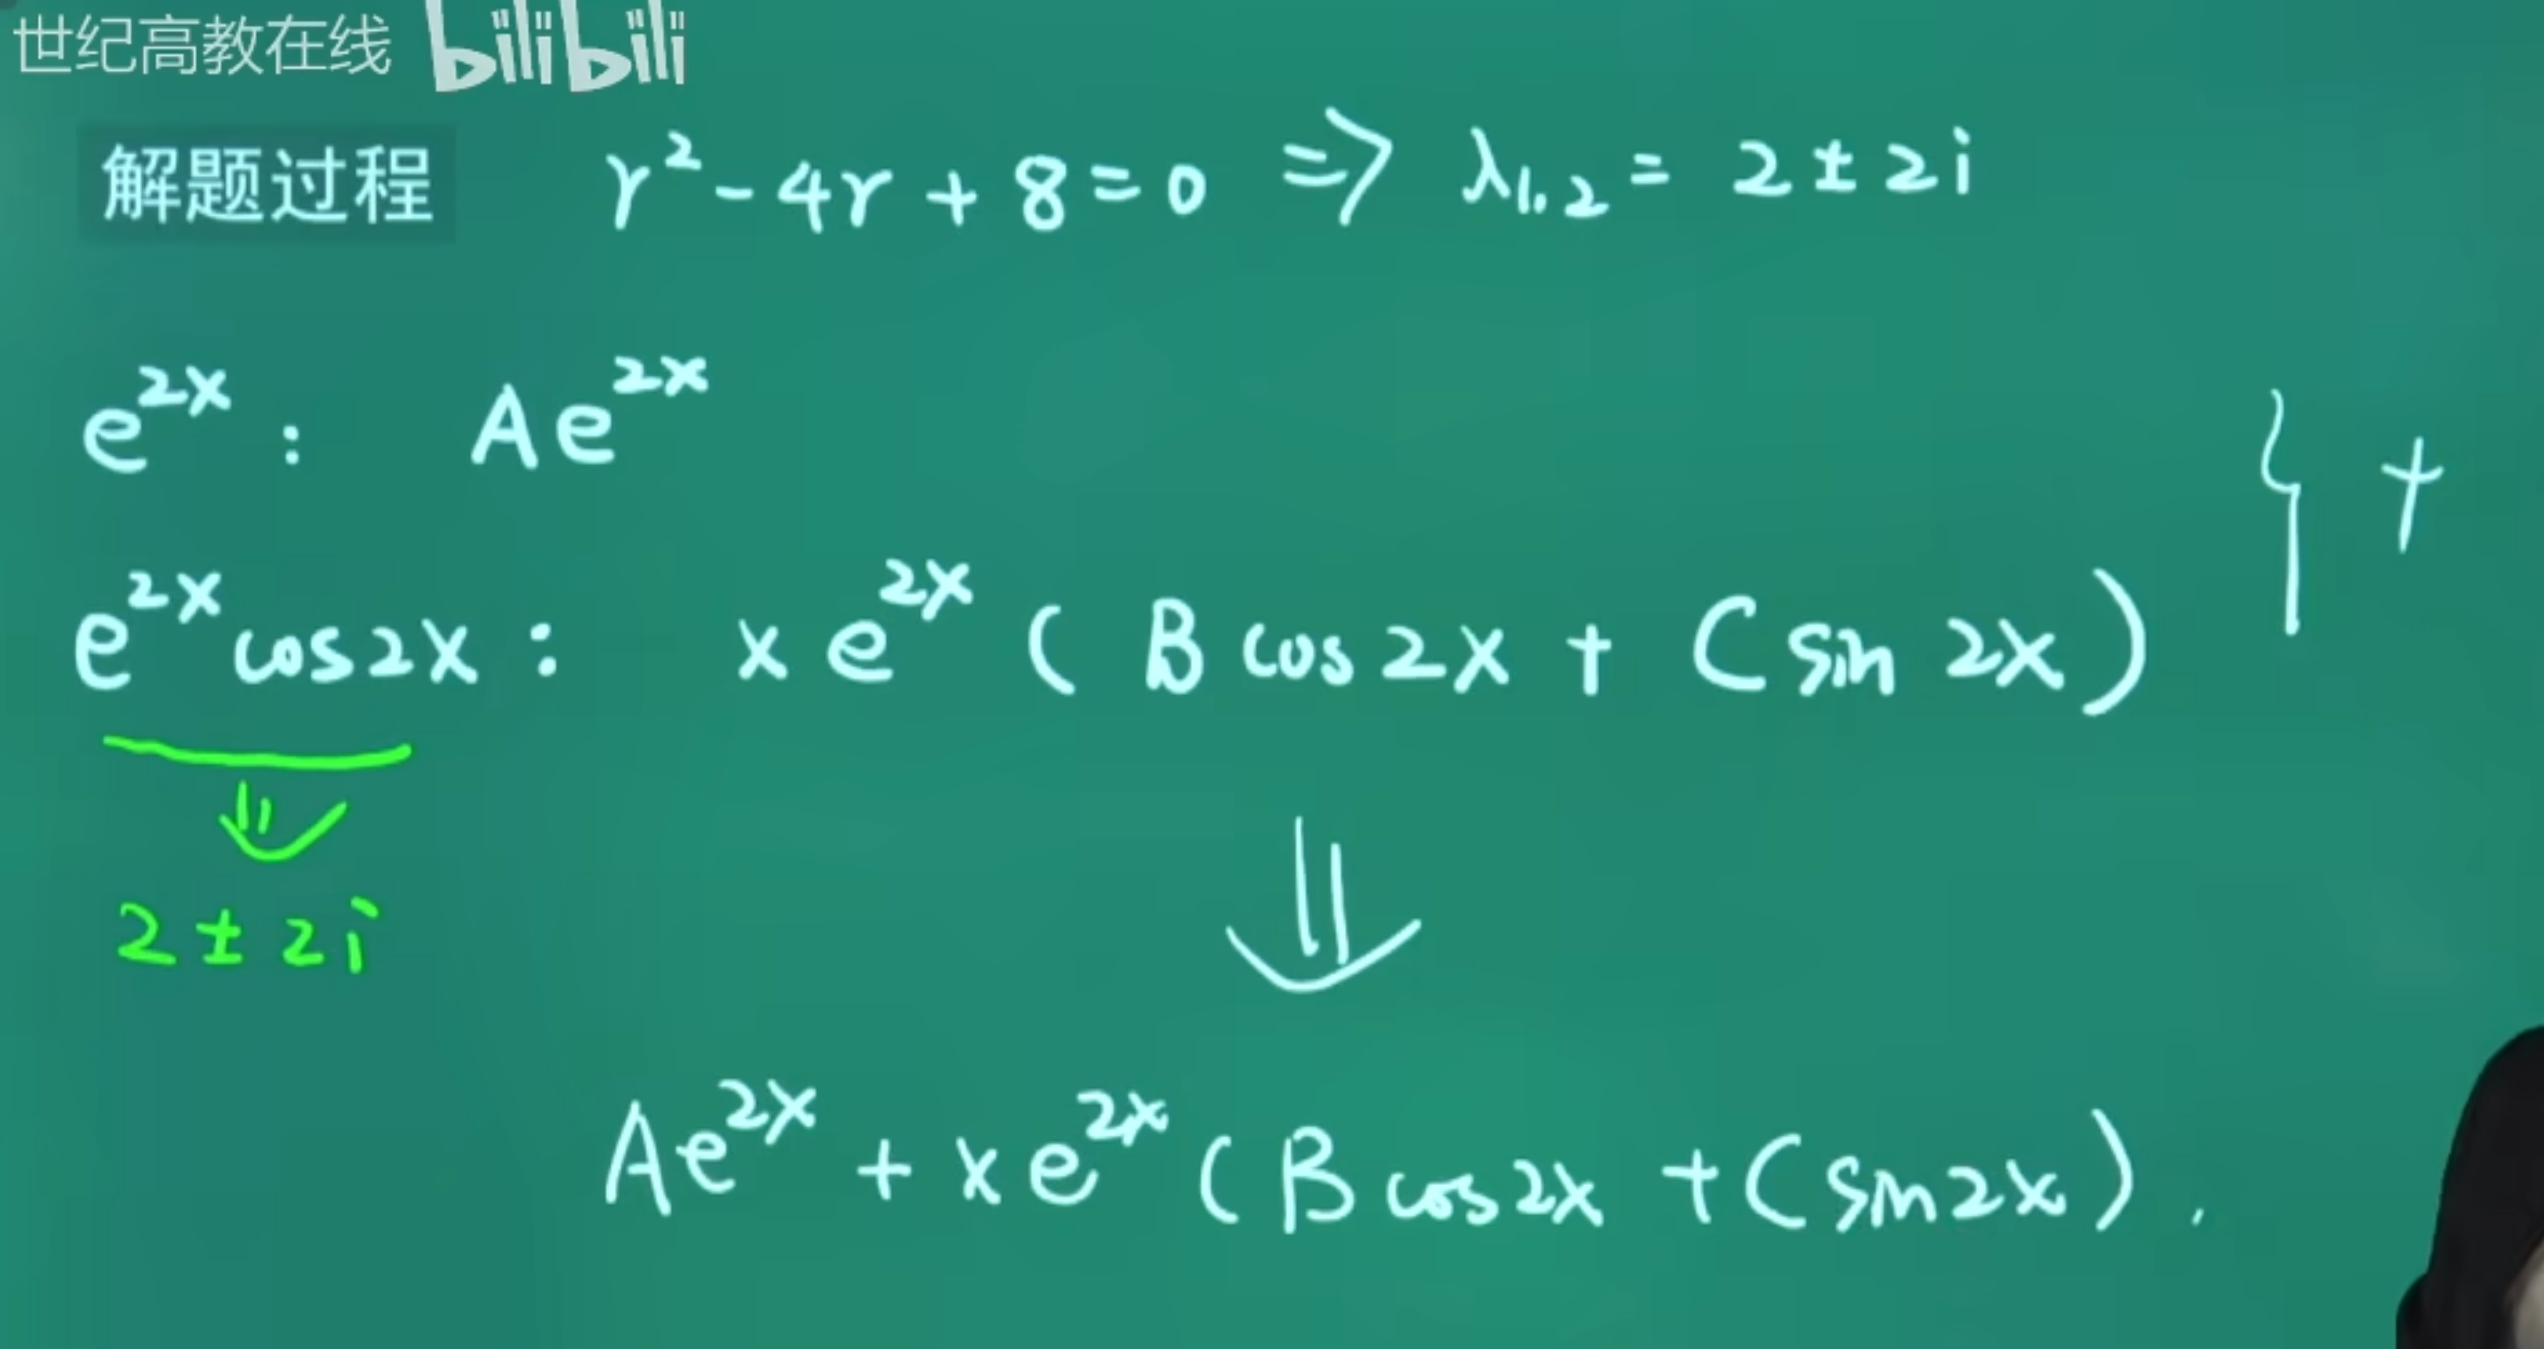 世纪高教在线 bilibili
解题过程 r² - 4r + 8 = 0 ⇒ λ₁.₂ = 2 ± 2i
e²ˣ : Ae²ˣ
} +
e²ˣ cos2x : x e²ˣ ( B cos 2x + C sin 2x )
⇓ ⇓
2 ± 2i
Ae²ˣ + x e²ˣ ( B cos2x + C sin2x ) .